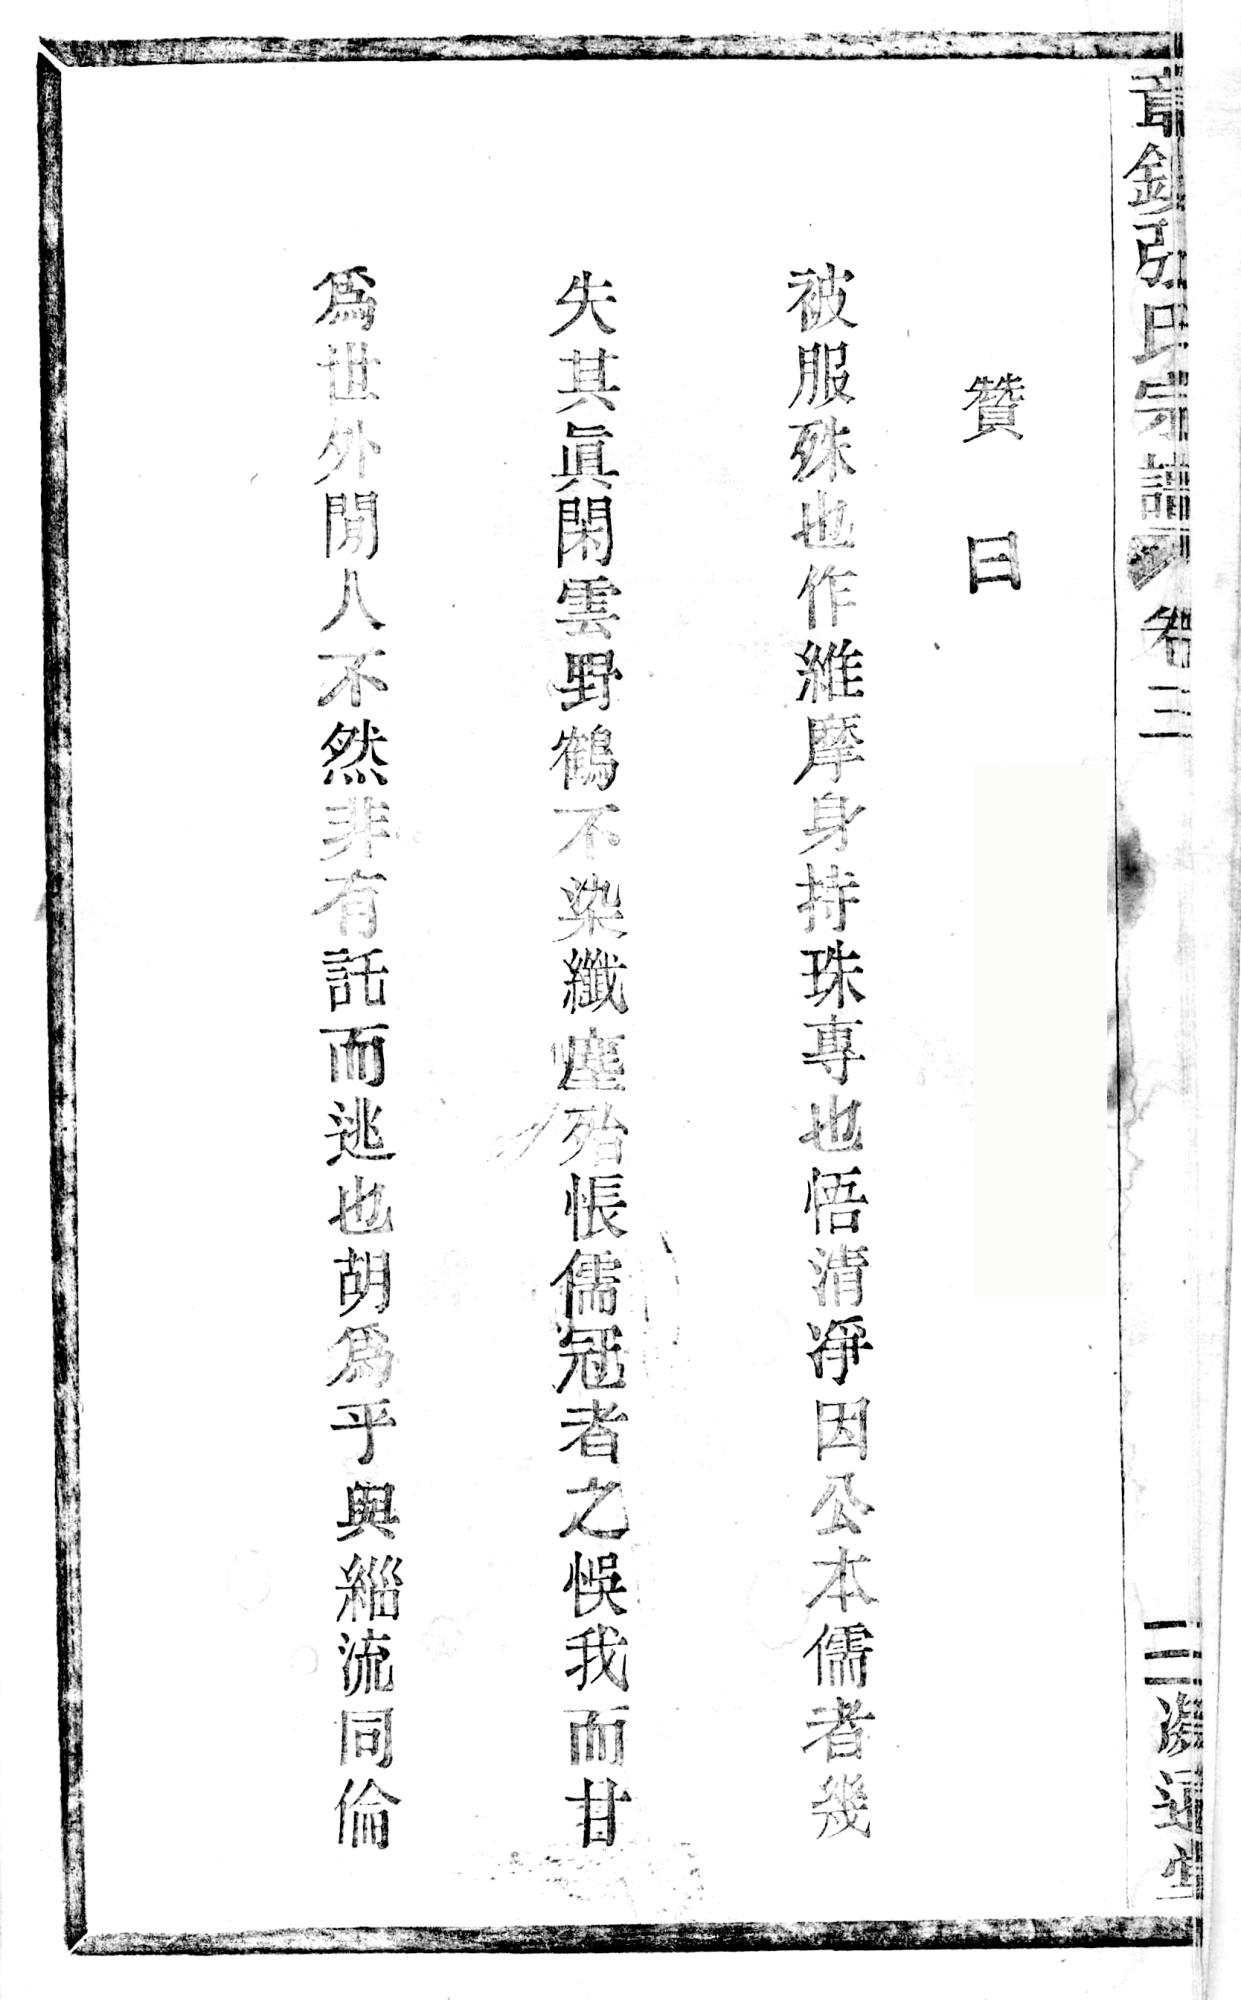 張氏宗譜 卷三
三
贊曰
被服殊也作維摩身持珠專也悟清凈因公本儒者幾
失其眞閑雲野鶴不染纖塵殆悵儒冠者之悞我而甘
爲世外閒人不然非有託而逃也胡爲乎與緇流同倫